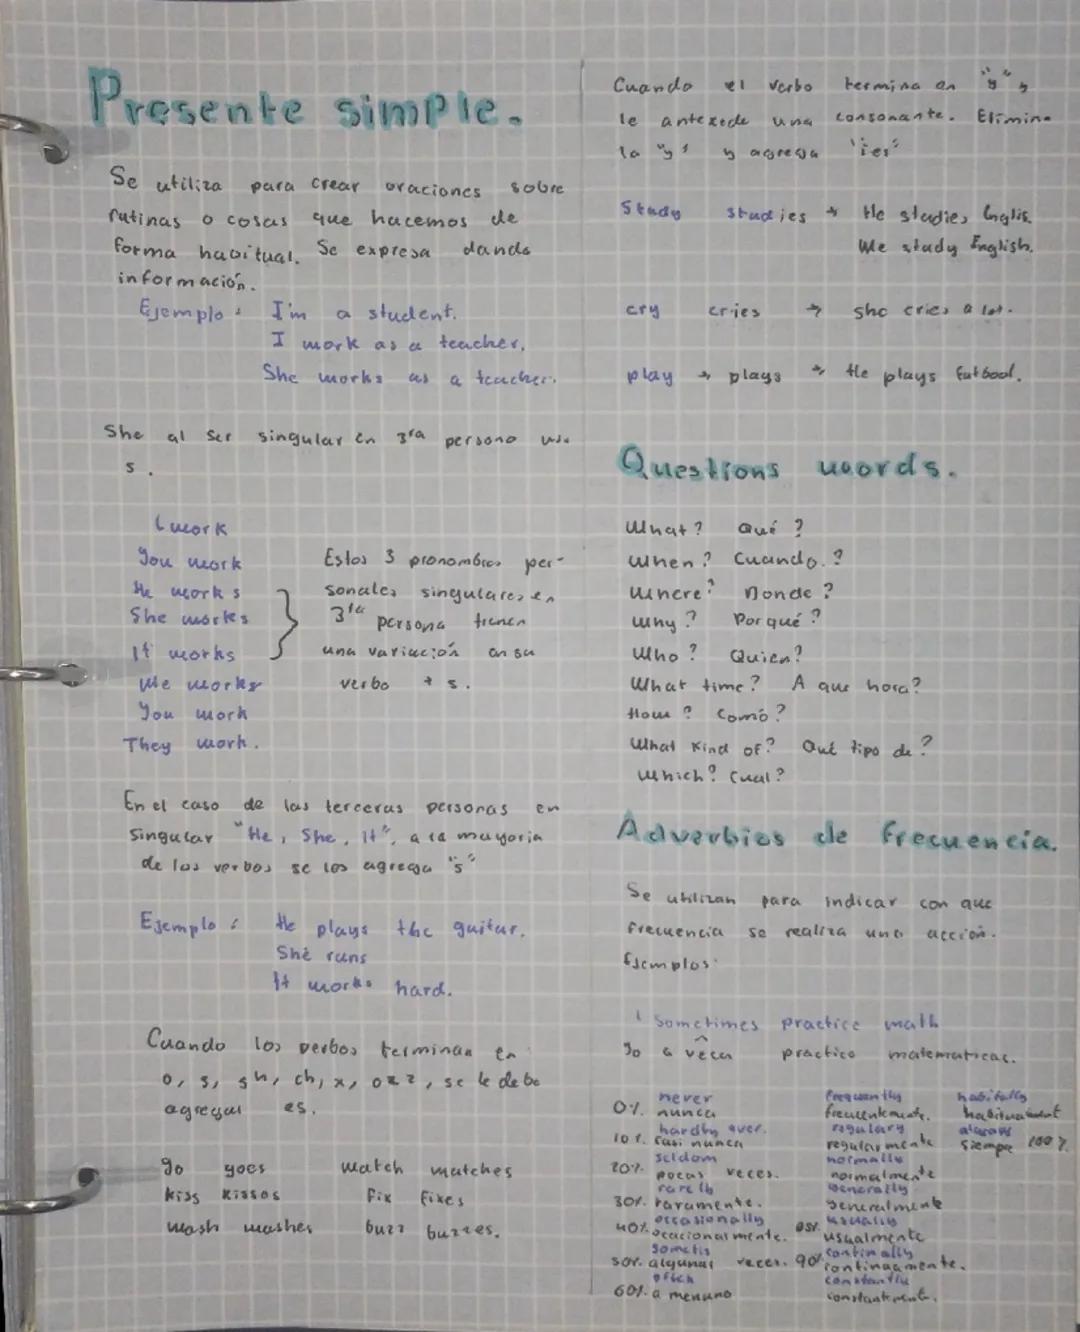 Presente simple.
Se utiliza para crear oraciones sobre
rutinas o cosas que hacemos de
forma habitual. Se expresa dando
información.
Ejemplo: I'm a student.
I work as a teacher.
She works as a teacher.
She al ser singular en 3ra persona usa
s.
I work
You work
He works
She works
It works
We works
You work
They work.
Estos 3 pronombres per-
sonales singulares en
3ra persona tienen
una variación en su
verbo + s.
En el caso de las terceras personas en
singular "He, She, It", a la mayoria
de los verbos se los agrega "s"
Ejemplo: He plays the guitar.
She runs
It works hard.
Cuando los verbos terminan en
o, s, sh, ch, x, o z z, se le debe
agregar es.
go goes watch watches
kiss kisses fix fixes
wash washes buzz buzzes.
Cuando el verbo termina en "y" y
le antexede una consonante. Elimina
la "y" y agrega "ies"
Study studies → He studies Englis.
We study English.
cry cries → she cries a lot.
play → plays → He plays futbool.
Questions words.
What? Qué?
When? Cuando.?
Where? Donde?
Why? Por qué?
Who? Quien?
What time? A que hora?
How? Comó?
What Kind of? Qué tipo de?
Which? Cual?
Adverbios de frecuencia.
Se utilizan para indicar con que
frecuencia se realiza una acción.
Ejemplos:
I Sometimes practice math
Yo a veces practico matematicas.
never
0%. nunca
hardly ever.
10%. casi nunca
seldom
20%. pocas veces.
30%. raramente.
occasionally
40%. ocacionalmente.
50%. algunas veces.
often
60%. a menuno
frequently
frecuentemente.
regulary
regularmente
normally
normalmente
generally
generalmente
usually
usualmente
90%. continally
continuamente.
constantly
constantment.
habitually
always
Siempre 100%